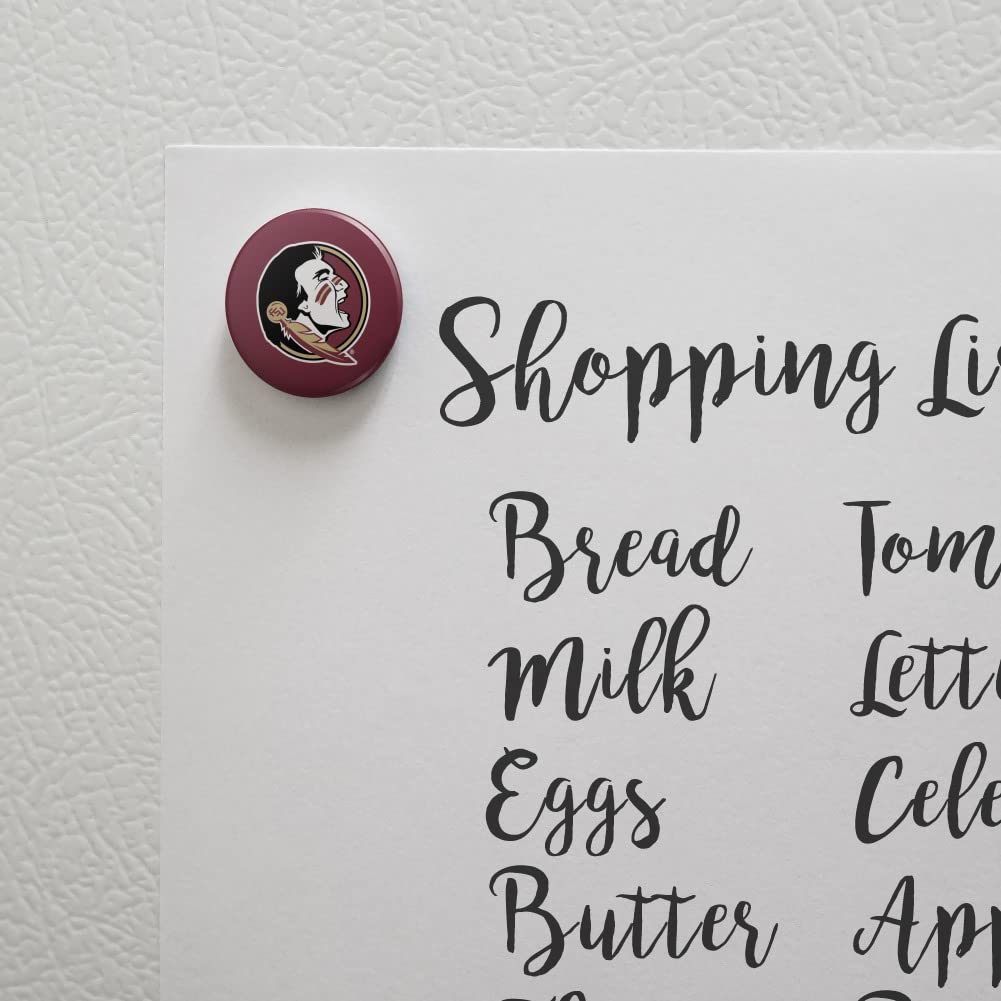 Shopping Li
Bread Tom
Milk Lett
Eggs Cele
Butter App